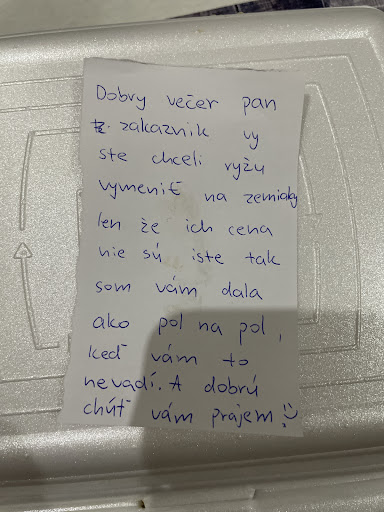 Dobry večer pan
zakaznik vy
ste chceli ryžu
vymeniť na zemiaky
len že ich cena
nie sú iste tak
som vám dala
ako pol na pol,
keď vám to
nevadí. A dobrú
chúť vám prajem! :)